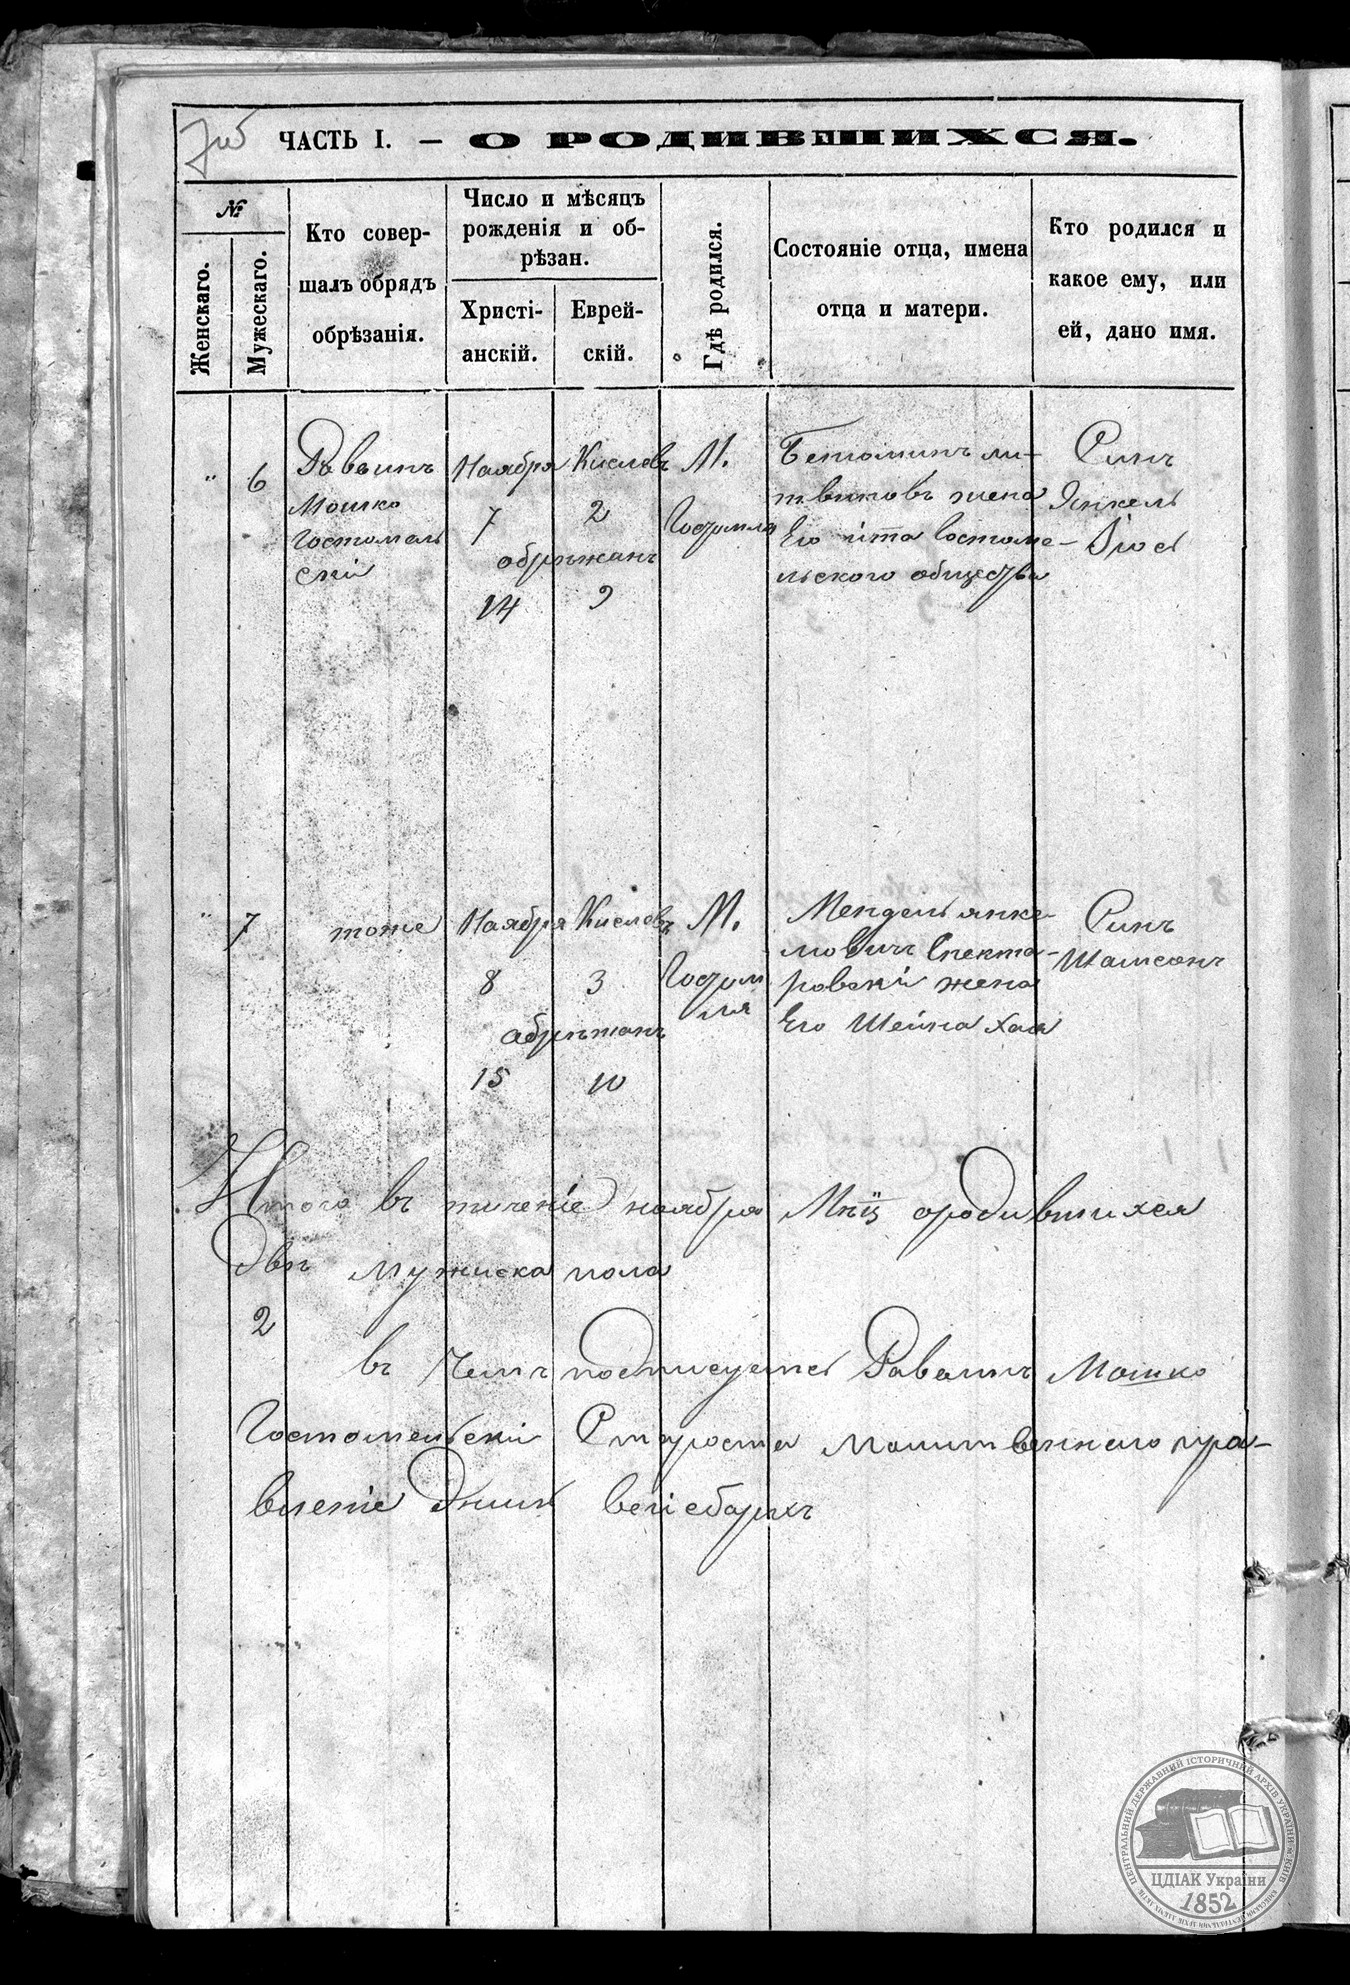 ЧАСТЬ I. — О РОДИВШИХСЯ.
№
Женскаго.
Мужескаго.
Кто совер-
шалъ обрядъ
обрѣзанія.
Число и мѣсяцъ
рожденія и об-
рѣзан.
Христі-
анскій.
Еврей-
скій.
Гдѣ родился.
Состояніе отца, имена
отца и матери.
Кто родился и
какое ему, или
ей, дано имя.
" 6
Раввинъ
Мошко
Гостомель
скі
Ноября
7
Кислевъ
2
обрѣжанъ
14 9
М.
Гостомля
Бетоминъ ли-
твиковъ жена
Его Гостоме-
льского общества
Синъ
Янкель
Йось
" 7
тоже
Ноября
8
Кислевъ
3
абрѣжанъ
15 10
М.
Гостом
ля
Мендель янке-
левичъ Спекто-
ровскі жена
Его Шейна хая
Синъ
Шамсонъ
Итого въ тичение ноября Мѣц ородившихся
Двп мужиска пола
2
въ Чемъ подписуется Раввинъ Мошко
Гостомельскі Старости Молитвеннаго пра-
вленіе
ЦЕНТРАЛЬНИЙ ДЕРЖАВНИЙ ІСТОРИЧНИЙ АРХІВ УКРАЇНИ м. КИЇВ
ЦДІАК України
1852